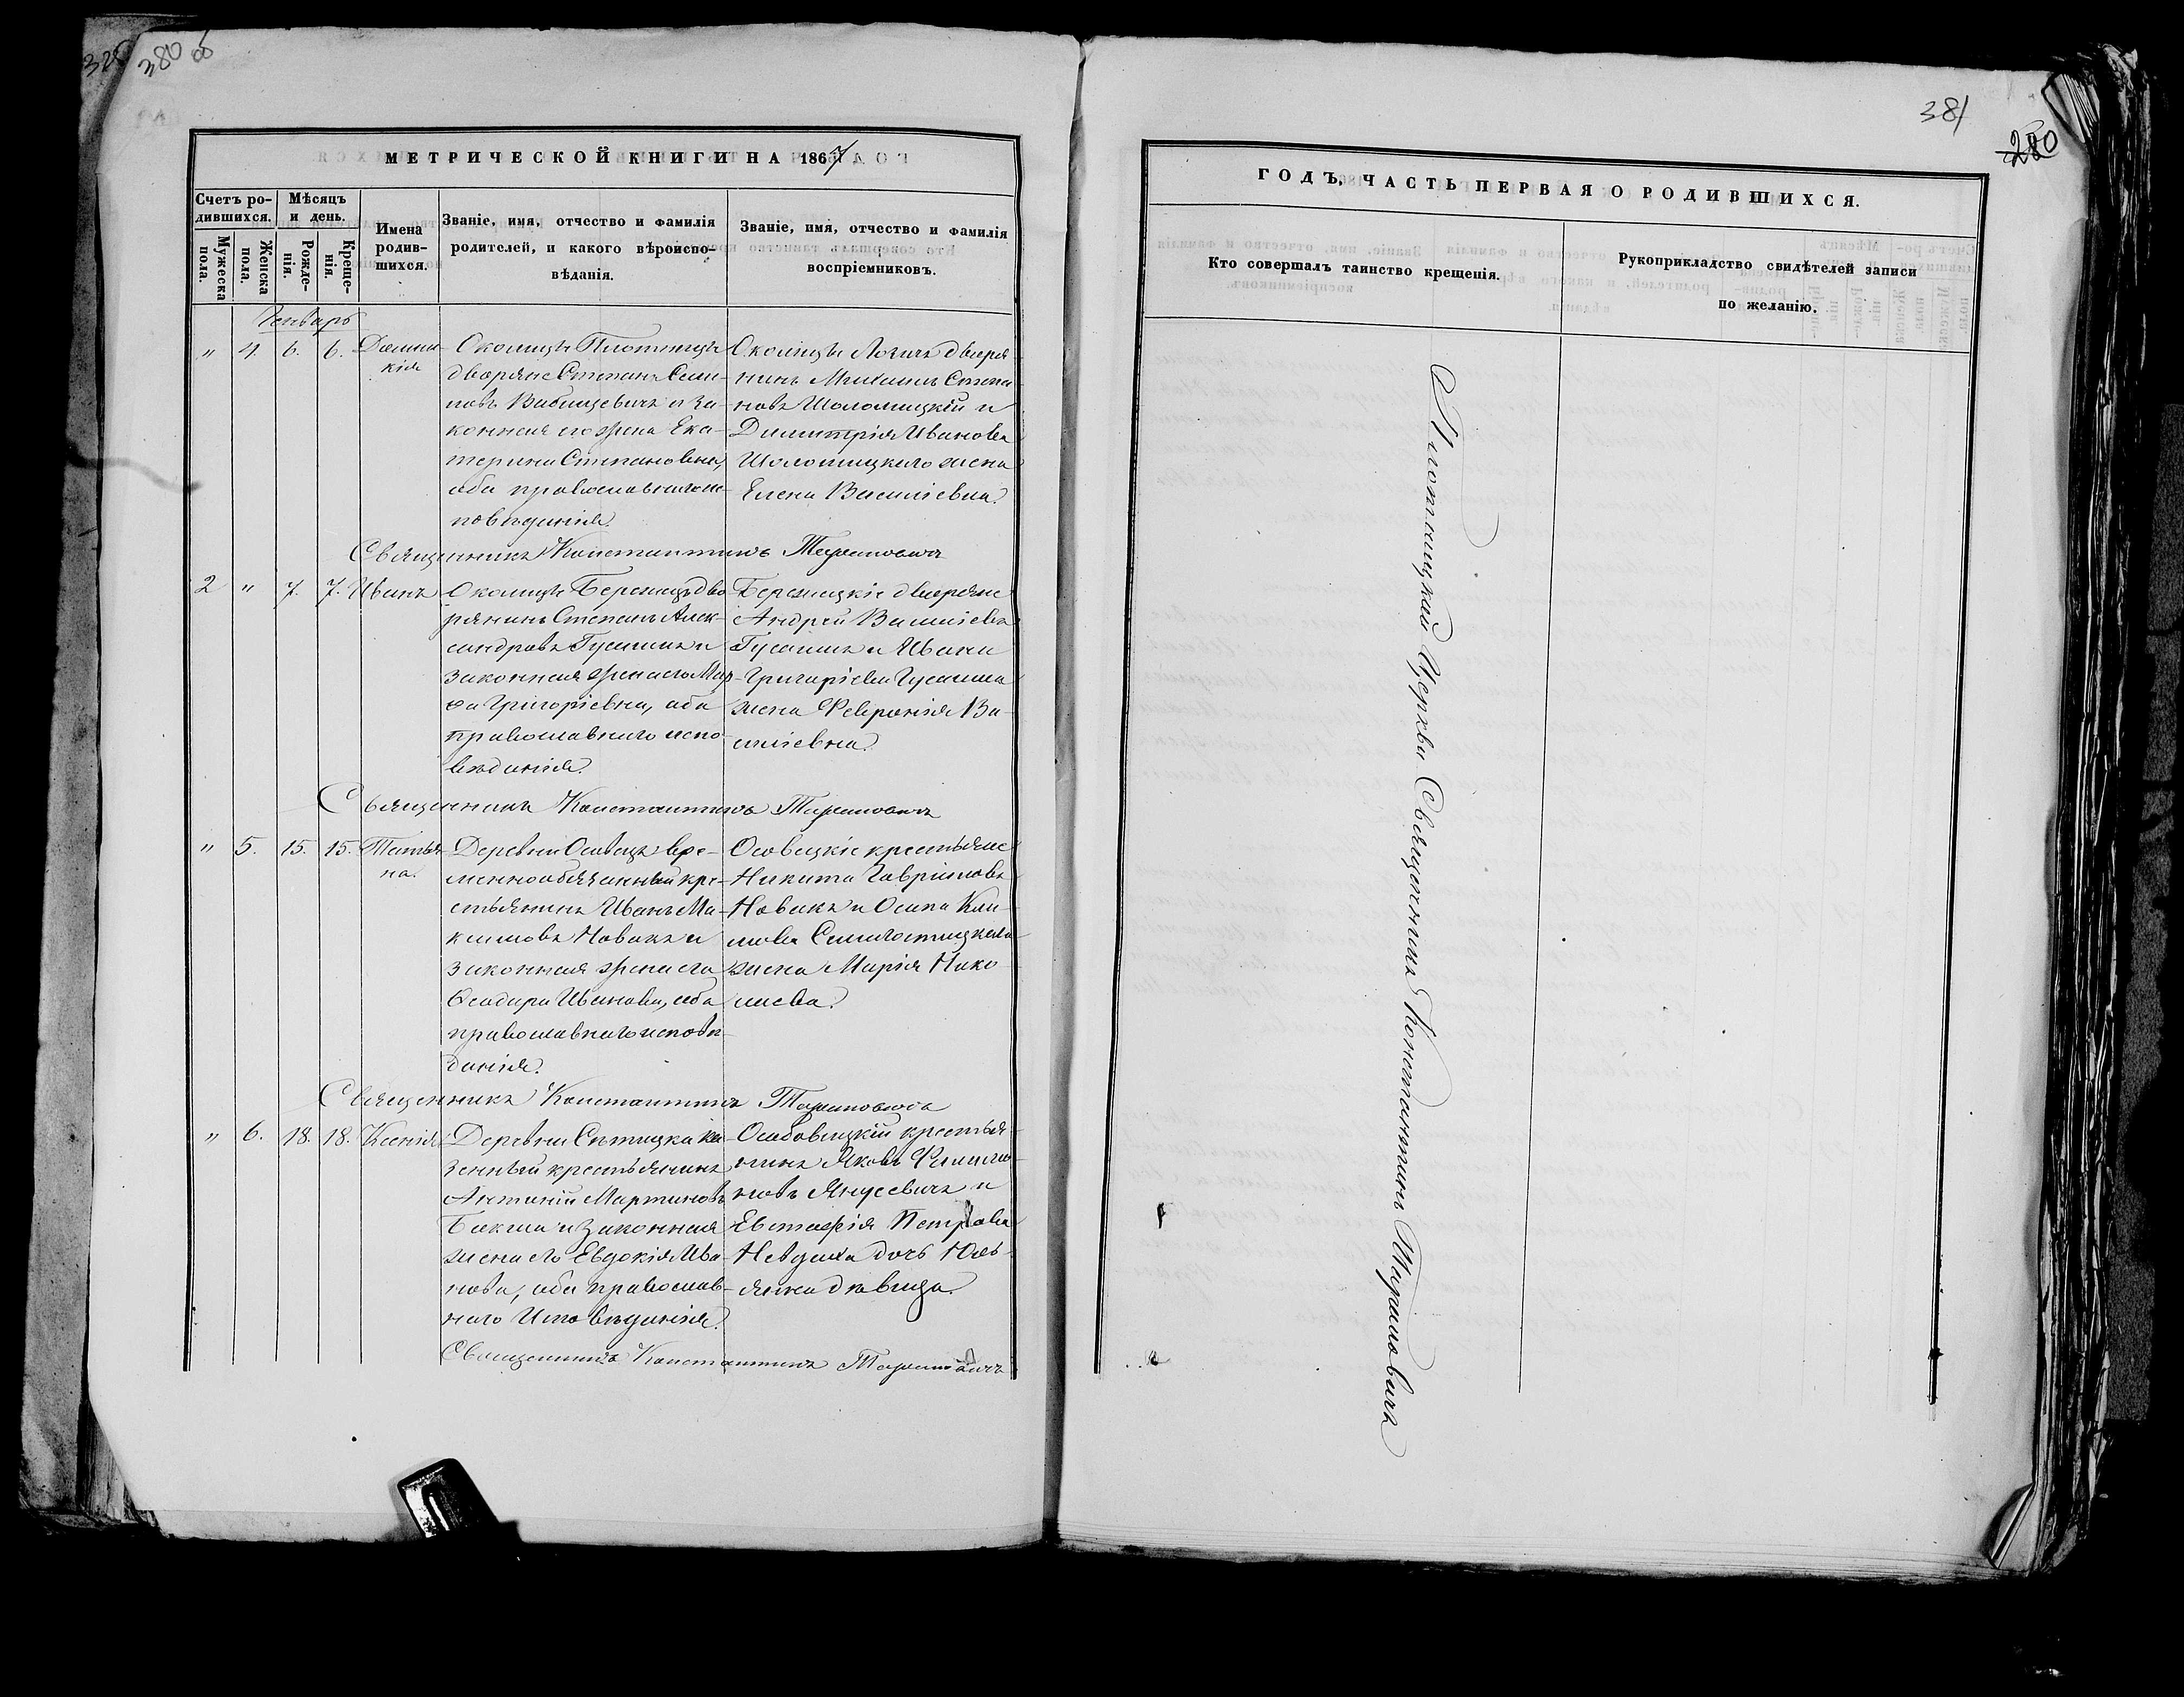 380 об
381
280
МЕТРИЧЕСКОЙ КНИГИ НА 1867
Счетъ ро-
дившихся.
Мѣсяцъ
и день.
Мужеска
пола.
Женска
пола.
Рожде-
нія.
Креще-
нія.
Имена
родив-
шихся.
Званіе, имя, отчество и фамилія
родителей, и какого вѣроиспо-
вѣданія.
Званіе, имя, отчество и фамилія
воспріемниковъ.
Генварь
" 4. 6. 6. Домни-
кія
Околицы Плотницы
дворяне Степанъ Семе-
новъ Вабищевичъ и за-
конная его жена Ека-
терина Степановна,
оба православнаго ис-
повѣданія.
Околицы дворя-
нинъ Михаилъ Степа-
новъ Шоломицкій и
Димитрія Иванова
Шоломицкаго жена
Елена Василіевна.
Священникъ Константинъ Тарановичъ
2 " 7. 7. Иванъ
Околицы Бережцы дво-
рянинъ Степанъ Алек-
сандровъ Гусашъ и
законная жена его Мар-
фа Григоріевна, оба
православнаго испо-
вѣданія.
Бережецкіе дворяне
Андрей Василіевъ
Гусашъ и Ивана
Григоріева Гусаша
жена Февронія Ва-
силіевна.
Священникъ Константинъ Тарановичъ
" 5. 15. 15. Татья-
на.
Деревни Осовецъ вре-
меннообязанный кре-
стьянинъ Иванъ Ма-
ксимовъ Новакъ и
законная жена его
Ѳеодора Иванова, оба
православнаго исповѣ-
данія.
Осовецкіе крестьяне
Никита Гавриловъ
Новакъ и Осипа Кли-
мова
жена Марія Нико-
лаева.
Священникъ Константинъ Тарановичъ
" 6. 18. 18. Ксенія
Деревни Ситицка ка-
зенный крестьянинъ
Антоній Мартиновъ
Бакша и законная
жена его Евдокія Ива-
нова, оба православ-
наго исповѣданія.
крестья-
нинъ Яковъ Филимо-
новъ Янусевичъ и
Евстафія Петрова
дочь Юль-
яна дѣвица.
Священникъ Константинъ Тарановичъ
ГОДЪ, ЧАСТЬ ПЕРВАЯ О РОДИВШИХСЯ.
Кто совершалъ таинство крещенія.
Рукоприкладство свидѣтелей записи
по желанію.
Плотницкой Церкви Священникъ Константинъ Тарановичъ